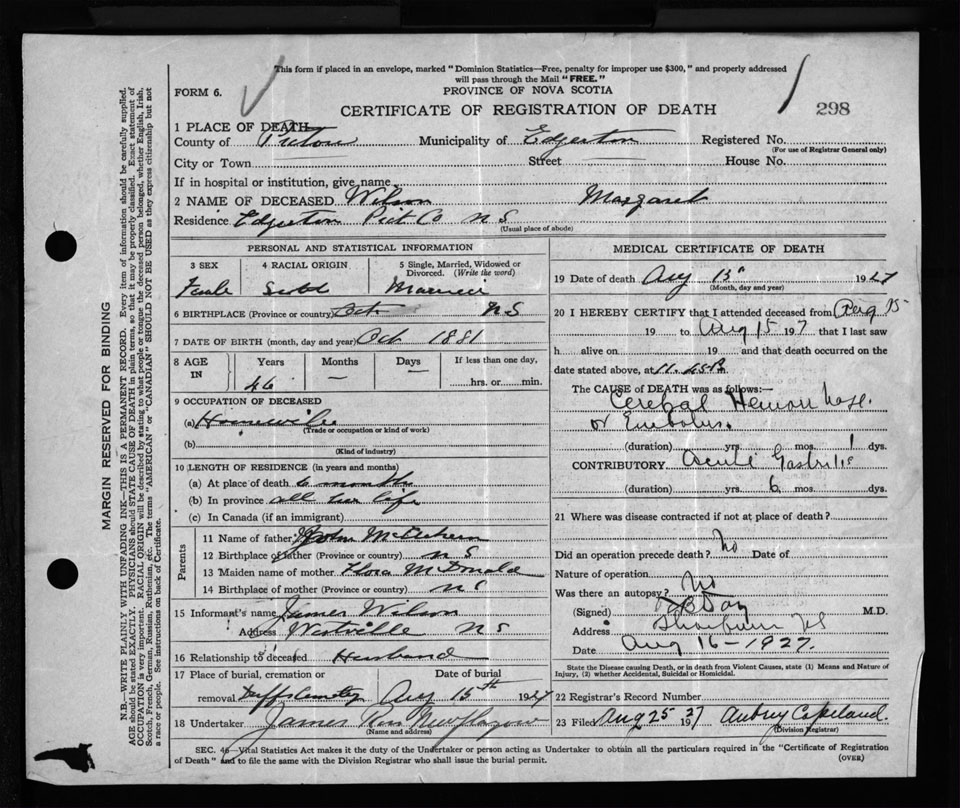 This form if placed in an envelope, marked "Dominion Statistics—Free, penalty for improper use $300," and properly addressed
will pass through the Mail "FREE."
FORM 6.
PROVINCE OF NOVA SCOTIA
CERTIFICATE OF REGISTRATION OF DEATH
298
1 PLACE OF DEATH—
County of Pictou Municipality of Edgerton Registered No.
(For use of Registrar General only)
City or Town Street House No.
If in hospital or institution, give name
2 NAME OF DECEASED Wilson Margaret
Residence Edgerton Pict Co N S
(Usual place of abode)
PERSONAL AND STATISTICAL INFORMATION
3 SEX 4 RACIAL ORIGIN 5 Single, Married, Widowed or Divorced. (Write the word)
Female Married
6 BIRTHPLACE (Province or country) N S
7 DATE OF BIRTH (month, day and year) Oct 1881
8 AGE IN Years Months Days If less than one day,
46 — — hrs. or min.
9 OCCUPATION OF DECEASED
(a) Housewife
(Trade or occupation or kind of work)
(b)
(Kind of industry)
10 LENGTH OF RESIDENCE (in years and months)
(a) At place of death 6 months
(b) In province all her life
(c) In Canada (if an immigrant)
Parents
11 Name of father John
12 Birthplace of father (Province or country) N S
13 Maiden name of mother Flora McDonald
14 Birthplace of mother (Province or country) N S
15 Informant's name James Wilson
Address Westville N S
16 Relationship to deceased Husband
17 Place of burial, cremation or Date of burial
removal Duffs Cemetery Aug 15th 1927
18 Undertaker James New Glasgow
(Name and address)
MEDICAL CERTIFICATE OF DEATH
19 Date of death Aug 1927
(Month, day and year)
20 I HEREBY CERTIFY that I attended deceased from Aug 15
19 to Aug 15 1927 that I last saw
h alive on 19 and that death occurred on
date stated above, at 11.45
The CAUSE of DEATH was as follows:—
Cerebral Hemorrhage
or Embolus.
(duration) yrs. mos. 1 dys.
CONTRIBUTORY Acute Gastritis
(duration) yrs. 6 mos. dys.
21 Where was disease contracted if not at place of death?
Did an operation precede death? No Date of
Nature of operation
Was there an autopsy? No
(Signed) Day M.D.
Address
Date Aug 16 - 1927.
State the Disease causing Death, or in death from Violent Causes, state (1) Means and Nature of
Injury, (2) whether Accidental, Suicidal or Homicidal.
22 Registrar's Record Number
23 Filed Aug 25 1927 Aubrey Copeland.
(Division Registrar)
SEC. 46—Vital Statistics Act makes it the duty of the Undertaker or person acting as Undertaker to obtain all the particulars required in the "Certificate of Registration
of Death" and to file the same with the Division Registrar who shall issue the burial permit.
(OVER)
MARGIN RESERVED FOR BINDING
N.B.—WRITE PLAINLY WITH UNFADING INK—THIS IS A PERMANENT RECORD. Every item of information should be carefully supplied.
AGE should be stated EXACTLY. PHYSICIANS should STATE CAUSE OF DEATH in plain terms, so that it may be properly classified. Exact statement of
OCCUPATION is very important. RACIAL ORIGIN will be described by stating to what people or tongue the deceased person belonged, whether English, Irish,
Scotch, French, German, Russian, Ruthenian, etc. The terms "AMERICAN" or "CANADIAN" SHOULD NOT BE USED as they express citizenship but not
a race or people. See instructions on back of Certificate.